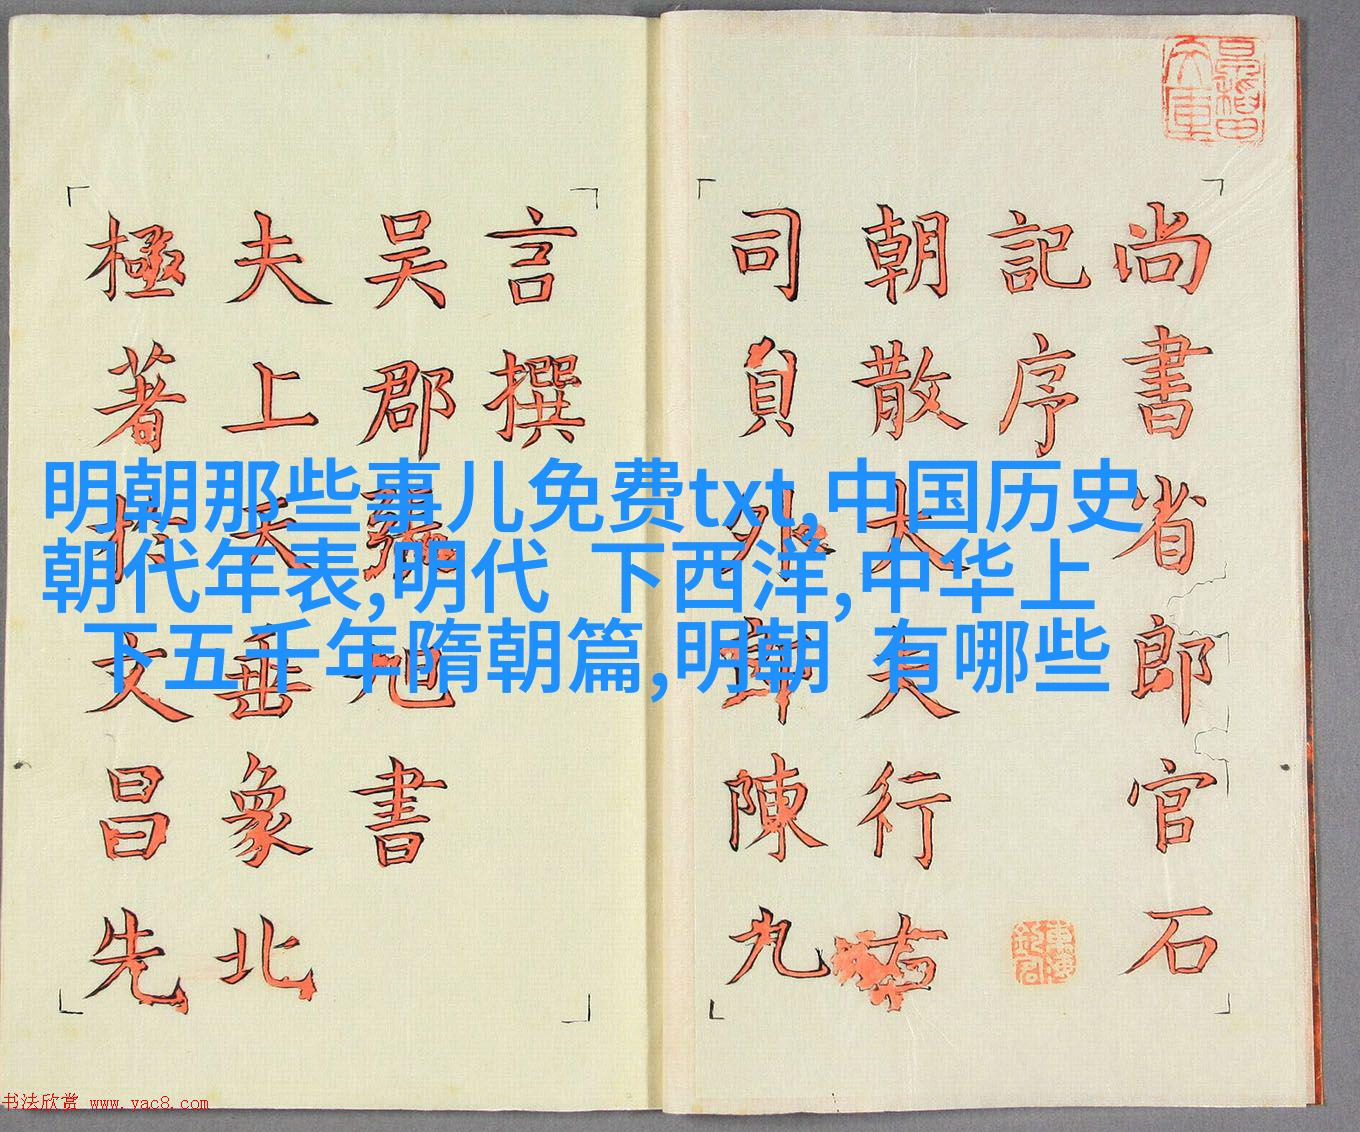 尚書省郎官石
記序
朝散大夫行右
司員外郎陳九
言撰
吴郡張旭書
夫上天垂象北
極著於文昌先
明朝那些事儿免费txt,中国历史
朝代年表,明代 下西洋,中华上
下五千年隋朝篇,明朝 有哪些
书法欣赏 www.yac8.com